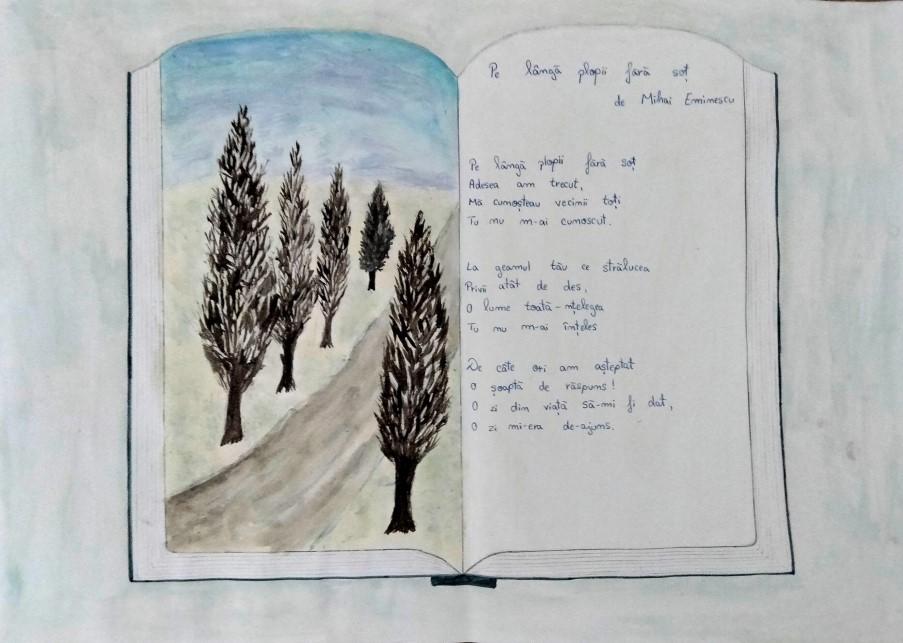 Pe lângă plopii fără soț
de Mihai Eminescu
Pe lângă plopii fără soț
Adesea am trecut,
Mă cunoșteau vecinii toți
Tu nu m-ai cunoscut.
La geamul tău ce strălucea
Privii atât de des,
O lume toată-nțelegea
Tu nu m-ai înțeles
De câte ori am așteptat
O șoaptă de răspuns!
O zi din viață să-mi fi dat,
O zi mi-era de-ajuns.